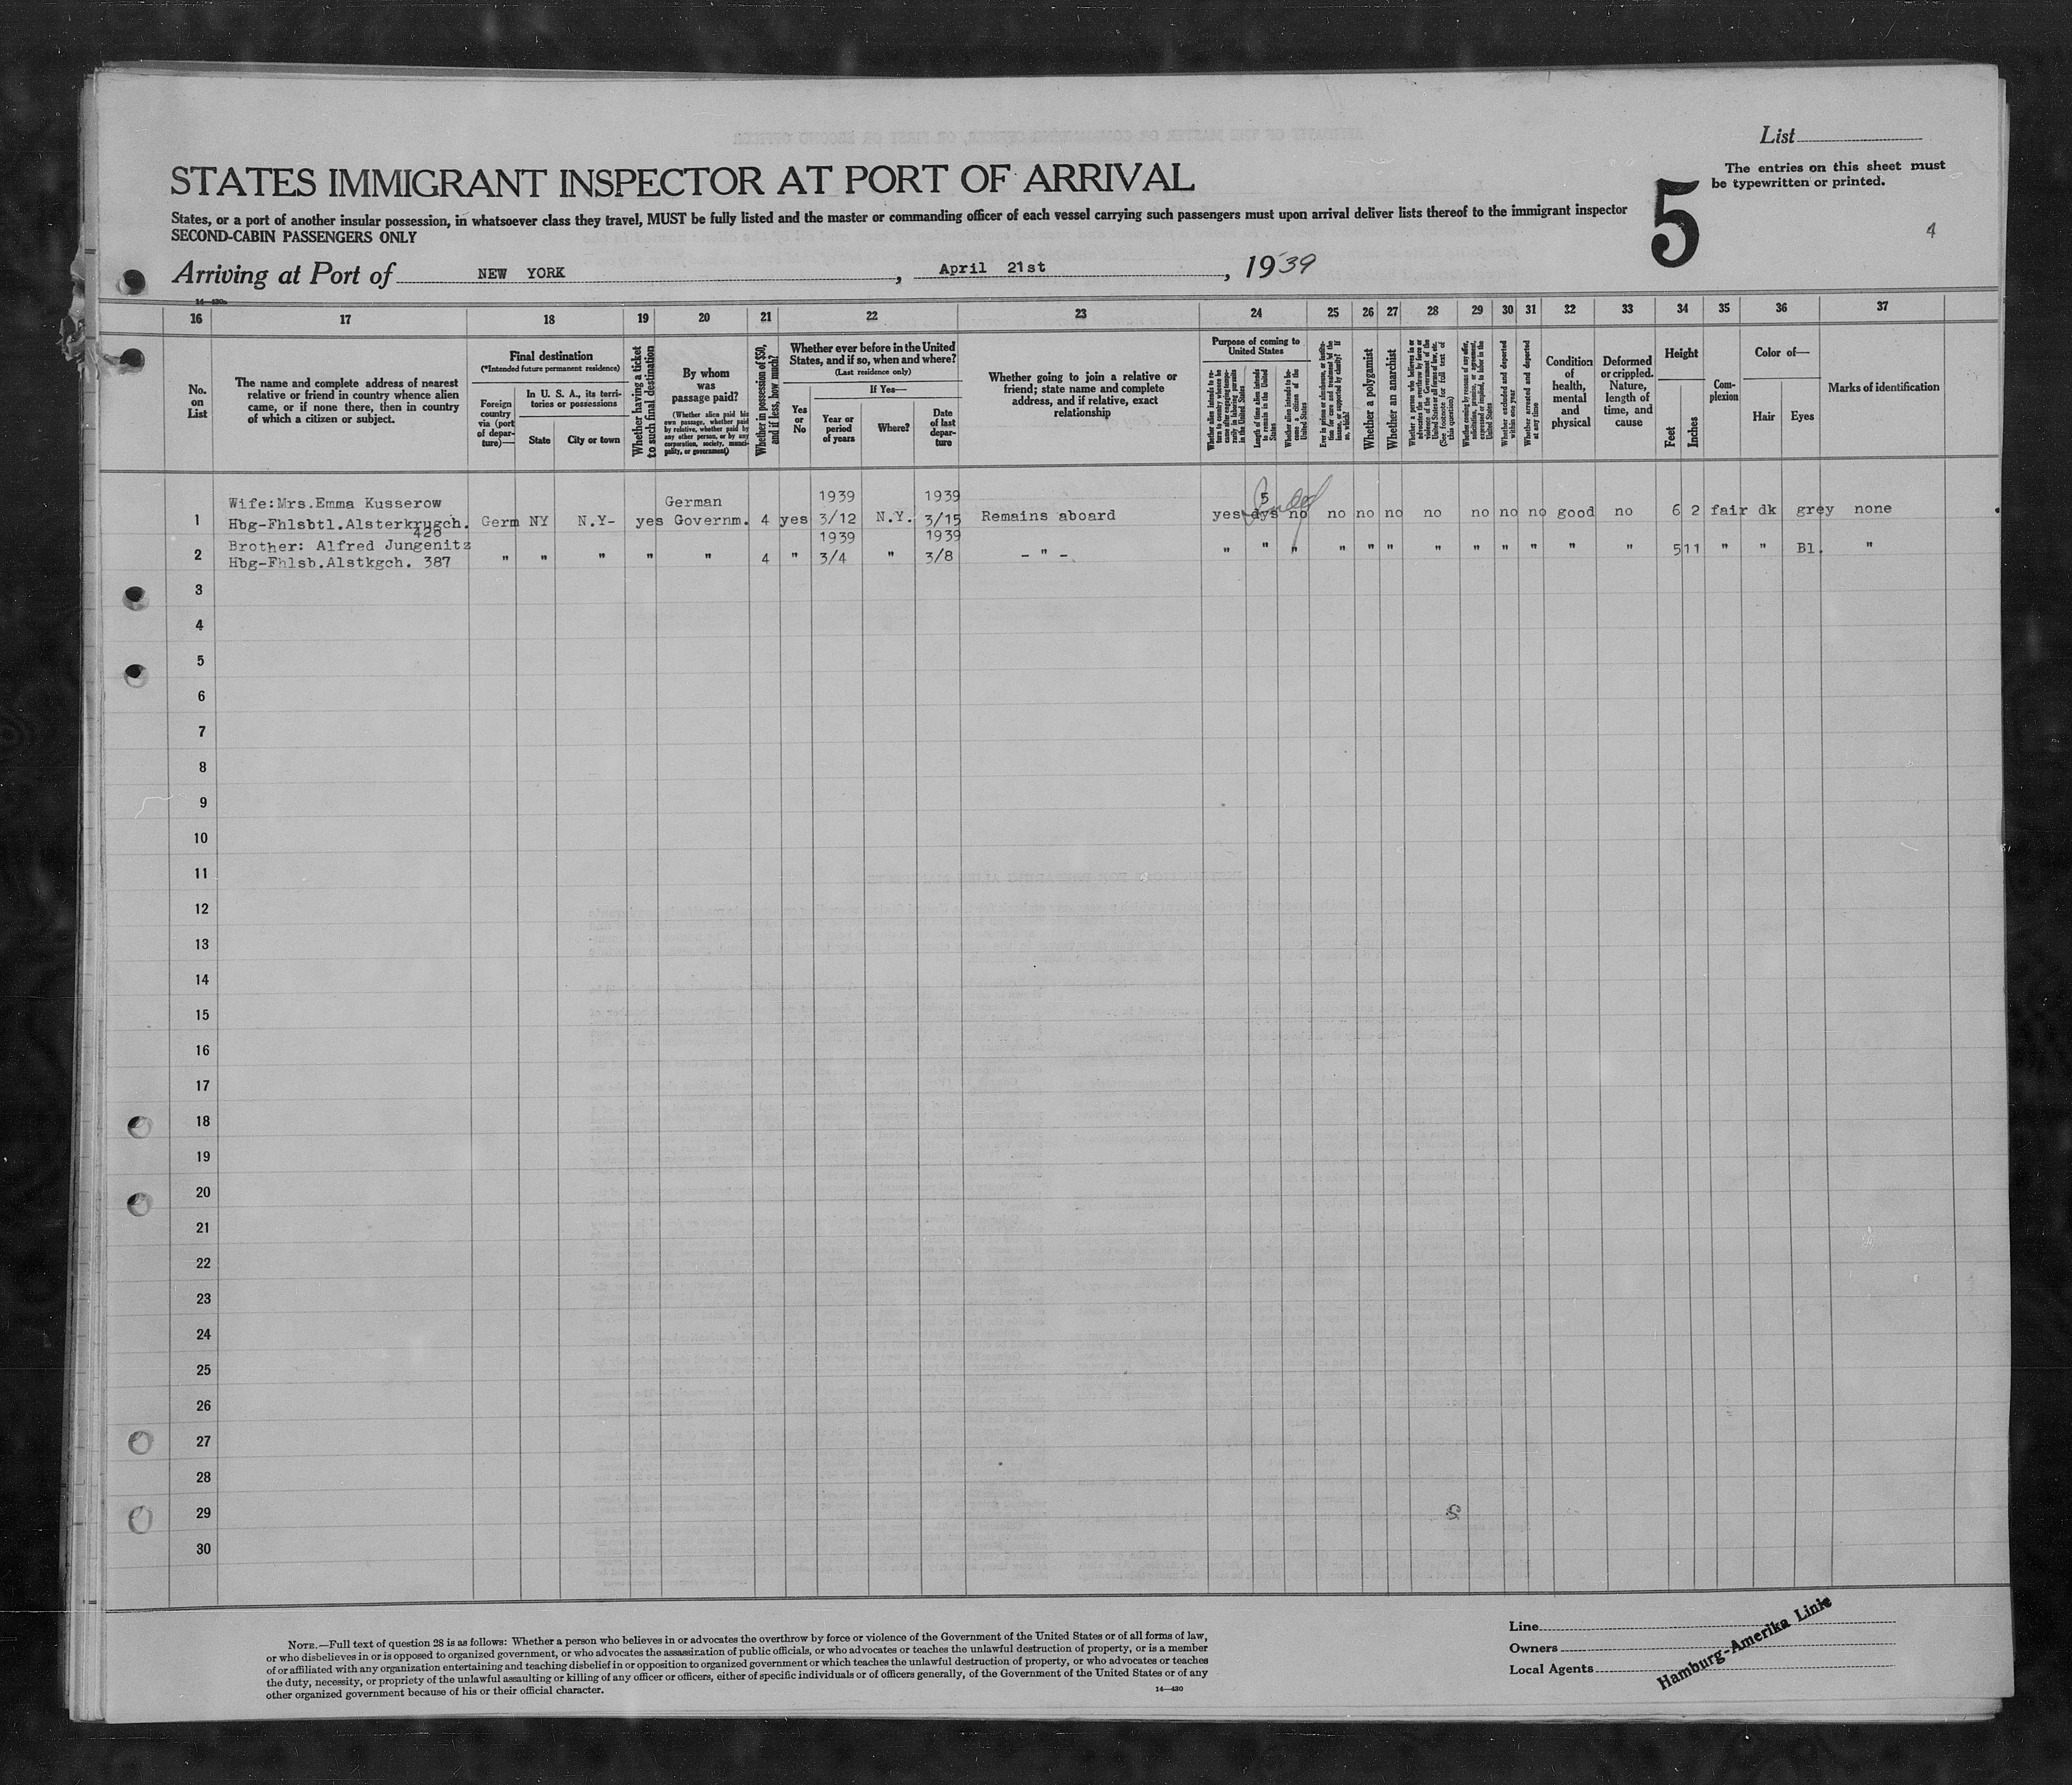 List
STATES IMMIGRANT INSPECTOR AT PORT OF ARRIVAL
5
The entries on this sheet must
be typewritten or printed.
States, or a port of another insular possession, in whatsoever class they travel, MUST be fully listed and the master or commanding officer of each vessel carrying such passengers must upon arrival deliver lists thereof to the immigrant inspector
SECOND-CABIN PASSENGERS ONLY
4
Arriving at Port of NEW YORK, April 21st, 1939
14—430
16 17 18 19 20 21 22 23 24 25 26 27 28 29 30 31 32 33 34 35 36 37
No. on List
The name and complete address of nearest
relative or friend in country whence alien
came, or if none there, then in country
of which a citizen or subject.
Final destination
(*Intended future permanent residence)
Foreign country via (port of departure)—
In U. S. A., its territories or possessions
State
City or town
Whether having a ticket to such final destination
By whom was passage paid?
(Whether alien paid his own passage, whether paid by relative, whether paid by any other person, or by any corporation, society, municipality, or government)
Whether in possession of $50, and if less, how much?
Whether ever before in the United States, and if so, when and where?
(Last residence only)
Yes or No
If Yes—
Year or period of years
Where?
Date of last departure
Whether going to join a relative or
friend; state name and complete
address, and if relative, exact
relationship
Purpose of coming to United States
Whether alien intends to return to country whence he came after engaging temporarily in laboring pursuits in the United States
Length of time alien intends to remain in the United States
Whether alien intends to become a citizen of the United States
Ever in prison or almshouse, or institution for care and treatment of the insane, or supported by charity? If so, which?
Whether a polygamist
Whether an anarchist
Whether a person who believes in or advocates the overthrow by force or violence of the Government of the United States or all forms of law, etc. (See footnote for full text of this question)
Whether coming by reason of any offer, solicitation, promise, or agreement, expressed or implied, to labor in the United States
Whether excluded and deported within one year
Whether arrested and deported at any time
Condition of health, mental and physical
Deformed or crippled. Nature, length of time, and cause
Height
Feet
Inches
Complexion
Color of—
Hair
Eyes
Marks of identification
Wife:Mrs.Emma Kusserow German 1939 1939 5
1 Hbg-Fhlsbtl.Alsterkrugch. Germ NY N.Y- yes Governm. 4 yes 3/12 N.Y. 3/15 Remains aboard yes dys no no no no no no no no good no 6 2 fair dk grey none
426
Brother: Alfred Jungenitz 1939 1939
2 Hbg-Fhlsb.Alstkgch. 387 " " " " " 4 " 3/4 " 3/8 - " - " " " " " " " " " " " " 5 11 " " Bl. "
3
4
5
6
7
8
9
10
11
12
13
14
15
16
17
18
19
20
21
22
23
24
25
26
27
28
29
30
NOTE.—Full text of question 28 is as follows: Whether a person who believes in or advocates the overthrow by force or violence of the Government of the United States or of all forms of law,
or who disbelieves in or is opposed to organized government, or who advocates the assassination of public officials, or who advocates or teaches the unlawful destruction of property, or is a member
of or affiliated with any organization entertaining and teaching disbelief in or opposition to organized government or which teaches the unlawful destruction of property, or who advocates or teaches
the duty, necessity, or propriety of the unlawful assaulting or killing of any officer or officers, either of specific individuals or of officers generally, of the Government of the United States or of any
other organized government because of his or their official character.
14—430
Line
Owners
Local Agents
Hamburg-Amerika Linie